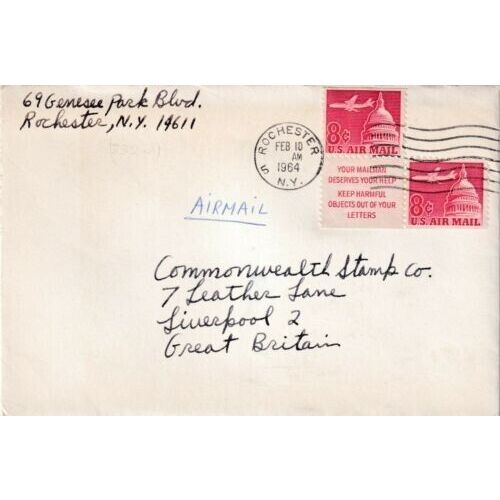 69 Genesee Park Blvd.
Rochester, N.Y. 14611
8¢
U.S. AIR MAIL
ROCHESTER
FEB 10
AM
1964
N.Y.
S
YOUR MAILMAN
DESERVES YOUR HELP
KEEP HARMFUL
OBJECTS OUT OF YOUR
LETTERS
8¢
U.S. AIR MAIL
AIRMAIL
Commonwealth Stamp Co.
7 Leather Lane
Liverpool 2
Great Britain